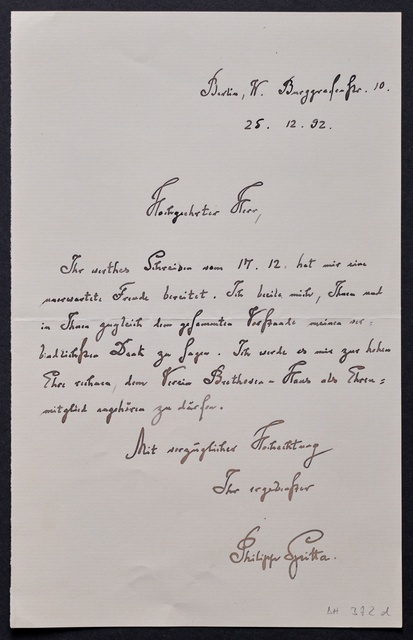 Berlin, W. Burggrafenstr. 10.
25. 12. 92.
Hochgeehrter Herr,
Ihr werthes Schreiben vom 17. 12. hat mir eine
unerwartete Freude bereitet. Ich beeile mich, Ihnen und
in Ihnen zugleich dem gesammten Vorstande meinen ver-
bindlichsten Dank zu sagen. Ich werde es mir zur hohen
Ehre rechnen, dem Verein Beethoven-Haus als Ehren-
mitglied angehören zu dürfen.
Mit vorzüglicher Hochachtung
Ihr ergebenster
Philipp Spitta.
BH 372 d